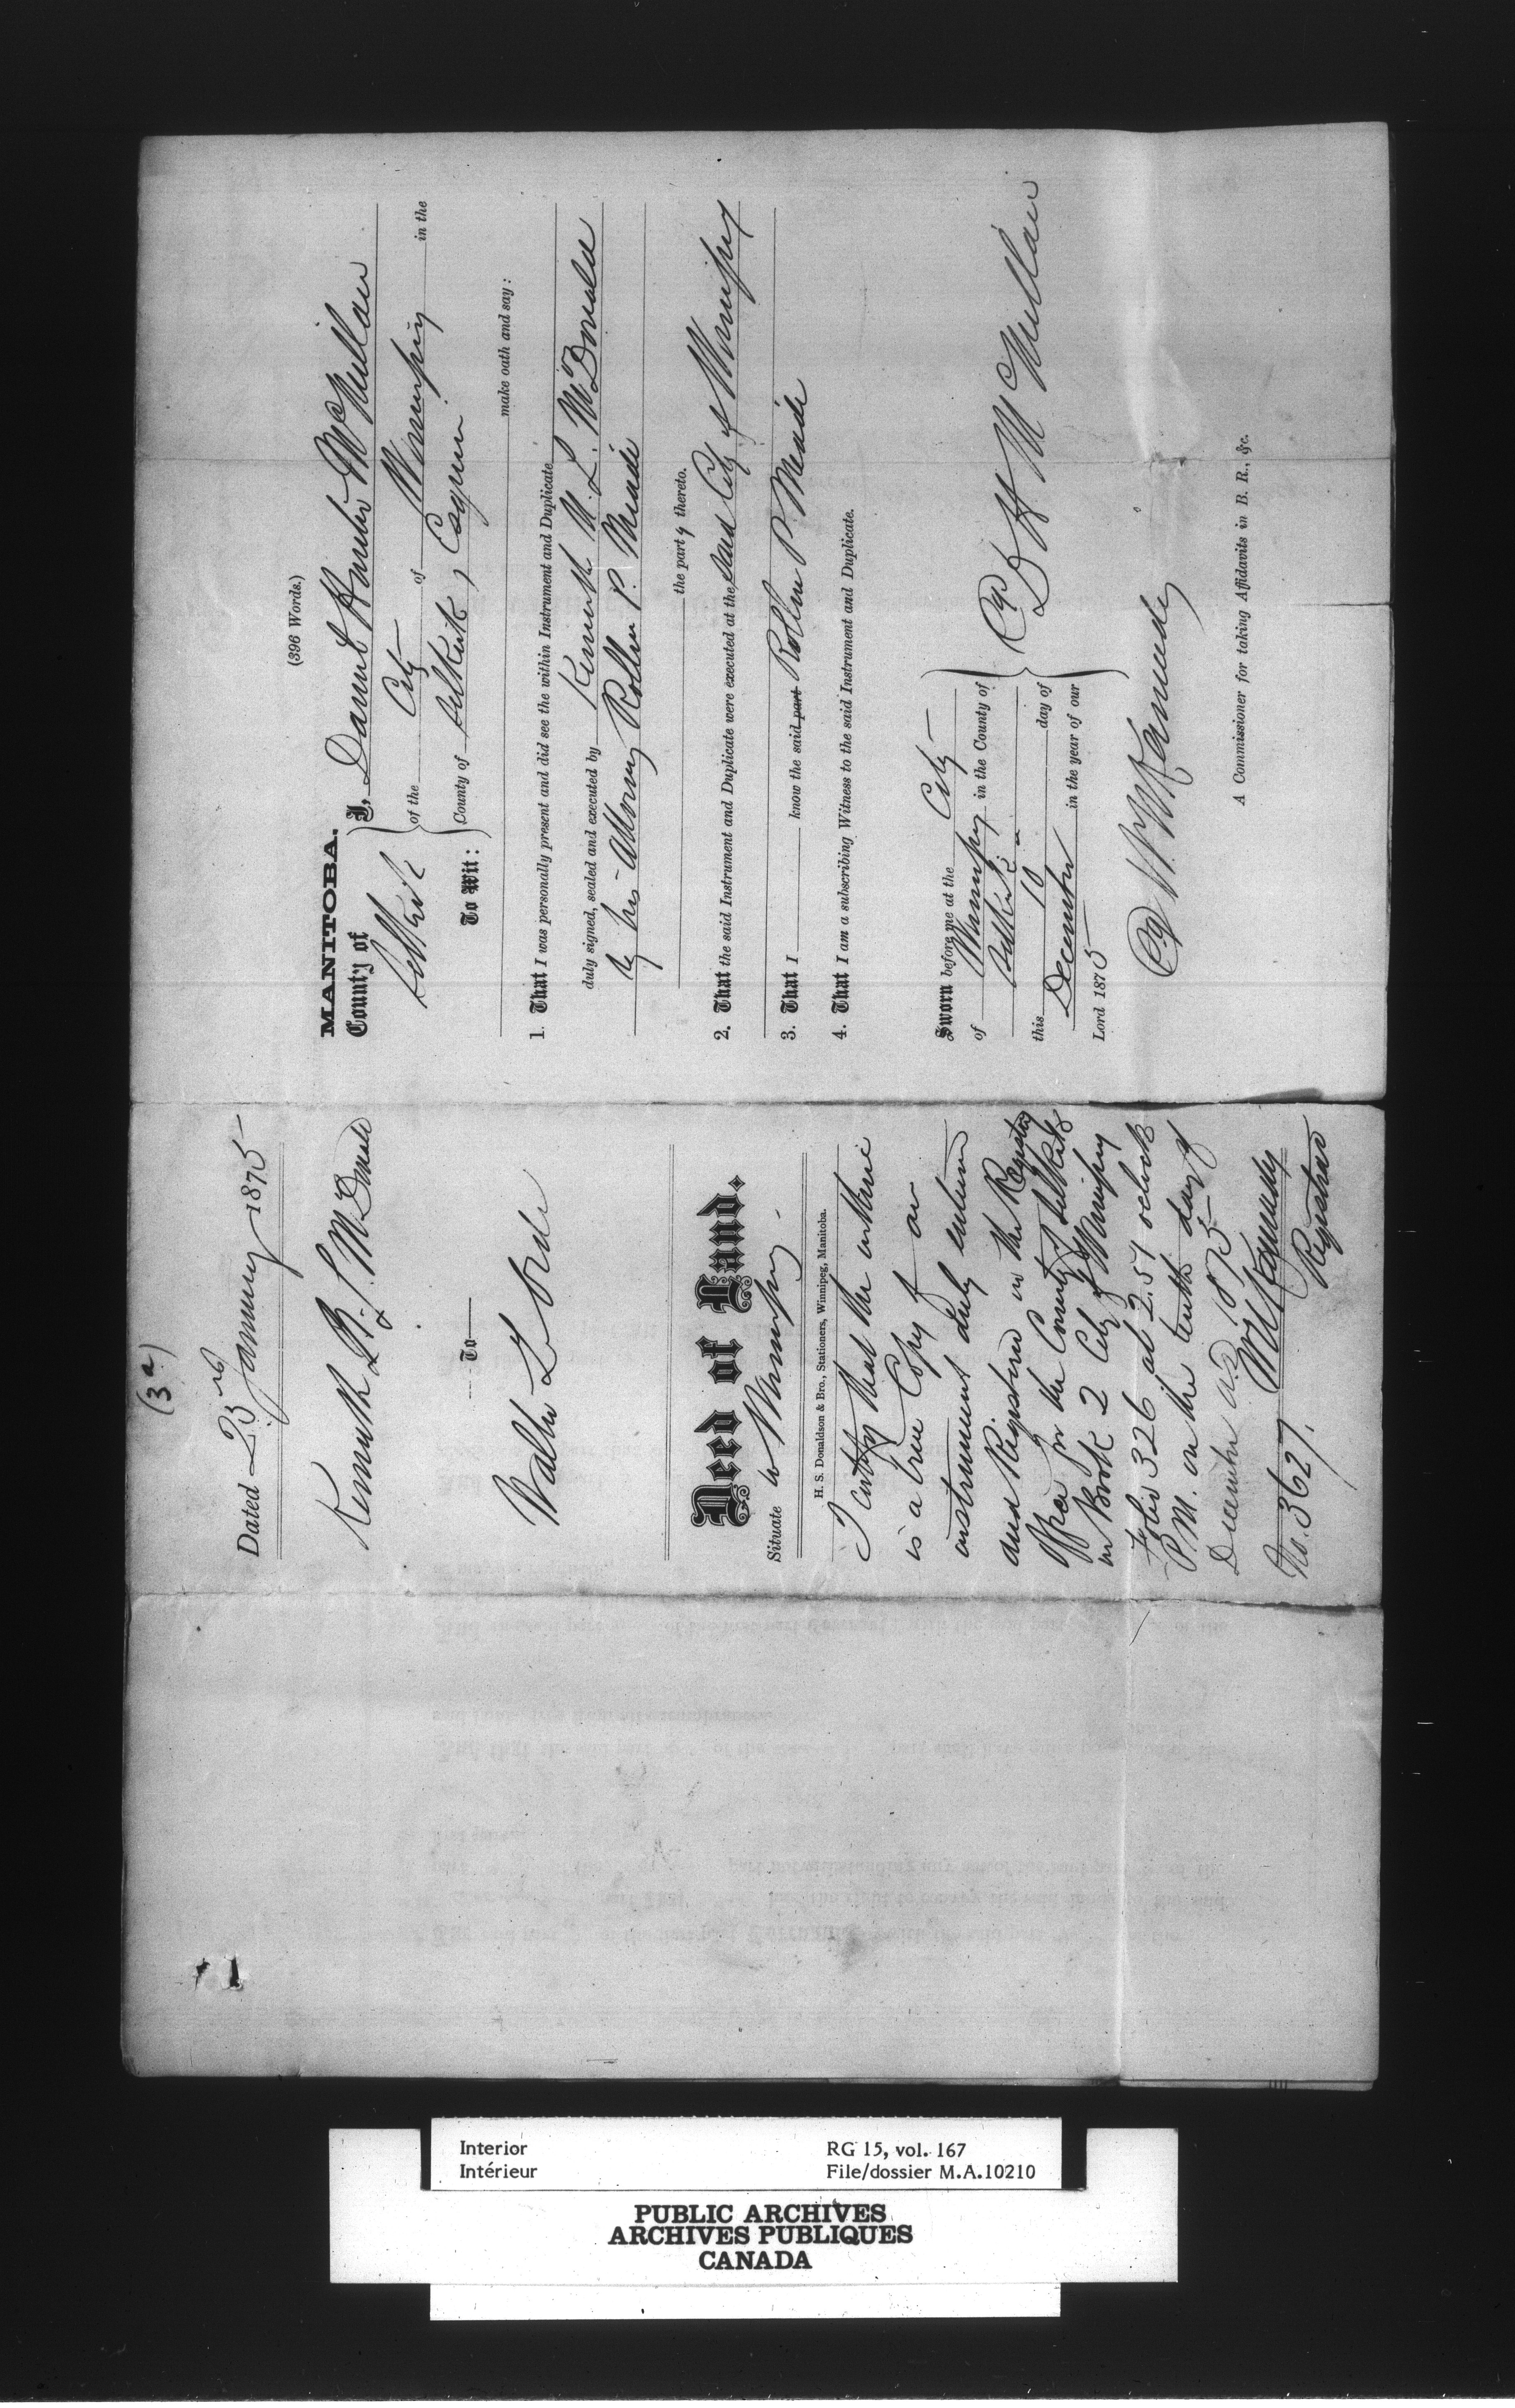 (3a)
Dated 23rd January 1875
Kenneth
McDonald
To
Walter Lorde
Deed of Land.
Situate in Winnipeg.
H. S. Donaldson & Bro., Stationers, Winnipeg, Manitoba.
I certify that the within
is a true Copy of an
instrument duly entered
and Registered in the Registry
Office for the County of Selkirk
in Book 2 City of Winnipeg
Folio 326 at 2.51 oclock
P.M. on the tenth day of
December A.D. 1875
W N Kennedy
No. 3627. Registrar
(396 Words.)
MANITOBA.
County of
Selkirk
To Wit:
I, Daniel Hunter McMillan
of the City of Winnipeg in the
County of Selkirk, Esquire
make oath and say:
1. That I was personally present and did see the within Instrument and Duplicate
duly signed, sealed and executed by Kenneth M. L. McDonald
by his Attorney Rollin P. Meade
the party thereto.
2. That the said Instrument and Duplicate were executed at the said City of Winnipeg
3. That I know the said part Rollin P Meade
4. That I am a subscribing Witness to the said Instrument and Duplicate.
Sworn before me at the City
of Winnipeg in the County of
Selkirk
this 10 day of
December in the year of our
Lord 1875
D H McMillan
W N Kennedy
A Commissioner for taking Affidavits in B. R., &c.
Interior
Intérieur
RG 15, vol. 167
File/dossier M.A.10210
PUBLIC ARCHIVES
ARCHIVES PUBLIQUES
CANADA